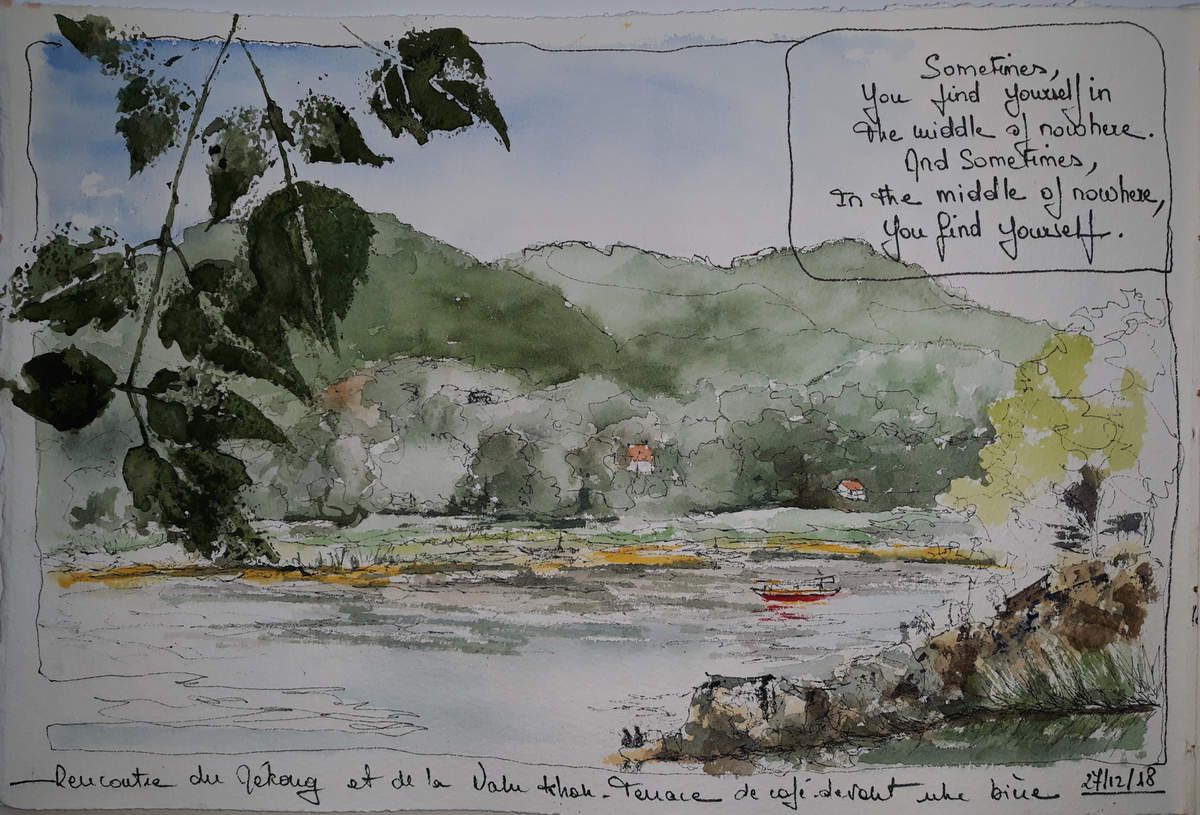 Sometimes,
You find yourself in
the middle of nowhere.
And Sometimes,
In the middle of nowhere,
You find yourself.
Rencontre du Mékong et de la Nahm khan - Terrace de café devant une bière 27/12/18